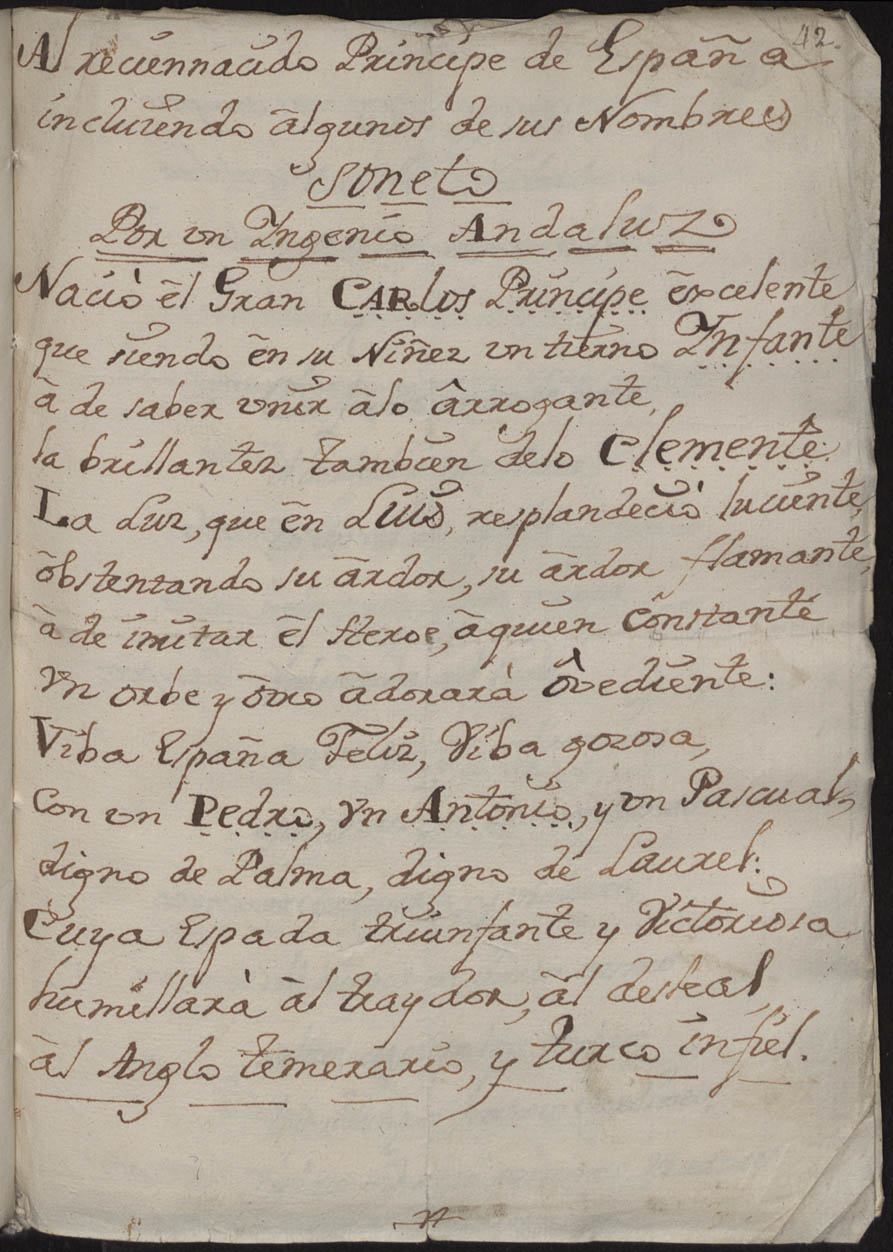 42.
Al reciennacido Principe de España
incluiendo ālgunos de sus Nombres
Soneto
Por vn Ingenio Andaluz
Naciò ēl Gran CARlos Principe ēxcelente
que siendo ēn su Niñez vn tierno Infante
ā de saber vnir ālo ârrogante,
la brillantez tambien delo Clemente:
La Luz, que ēn Luis, resplandeciò luciente,
ōbstentando su ārdor, su ārdor flamante,
ā de imitar ēl Heroe, āquien Cōnstante
vn orbe y ōtro ādorarà ôvediente:
Viba España Feliz, Viba gozosa,
Con vn Pedro, vn Antonio, y vn Pascual,
digno de Palma, digno de Laurel:
Cuya Espada triunfante y Victoriosa
humillarà āl traydor, āl desleal
āl Anglo temerario, y turco infiel.